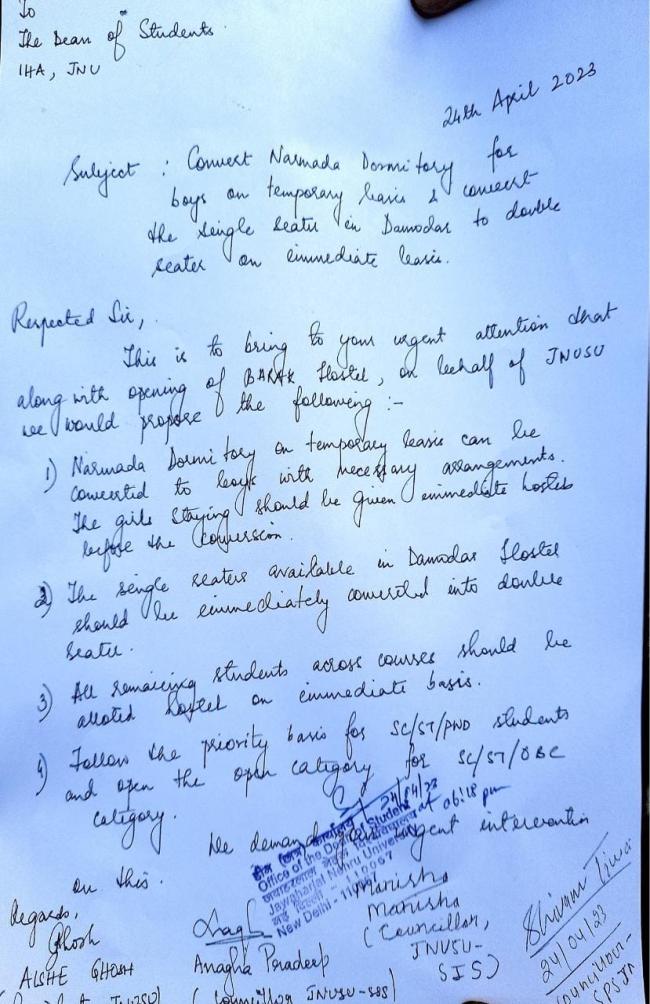 To
The Dean of Students
IHA, JNU
24th April 2023
Subject : Convert Narmada Dormitory for
boys on temporary basis & convert
the single seater in Damodar to double
seater on immediate basis.
Respected Sir,
This is to bring to your urgent attention that
along with opening of BARAK Hostel, on behalf of JNUSU
we would propose the following :-
1) Narmada Dormitory on temporary basis can be
converted to boys with necessary arrangements.
The girls staying should be given immediate hostels
before the conversion.
2) The single seaters available in Damodar Hostel
should be immediately converted into double
seater.
3) All remaining students across courses should be
alloted hostel on immediate basis.
4) Follow the priority basis for SC/ST/PWD students
and open the open category for SC/ST/OBC
category.
24/04/23
at 06:18 pm
We demand your urgent intervention
on this.
डीन (छात्र) कार्यालय
Office of the Dean of Students
जवाहरलाल नेहरू विश्वविद्यालय
Jawaharlal Nehru University
नई दिल्ली - 110067
New Delhi - 110067
Regards,
Ghosh
AISHE GHOSH
JNUSU)
Anagha Pradeep
(Councillor JNUSU-SSS)
Manisha
Manisha
(Councillor,
JNUSU-
SIS)
Shivam
24/04/23
Councillor-